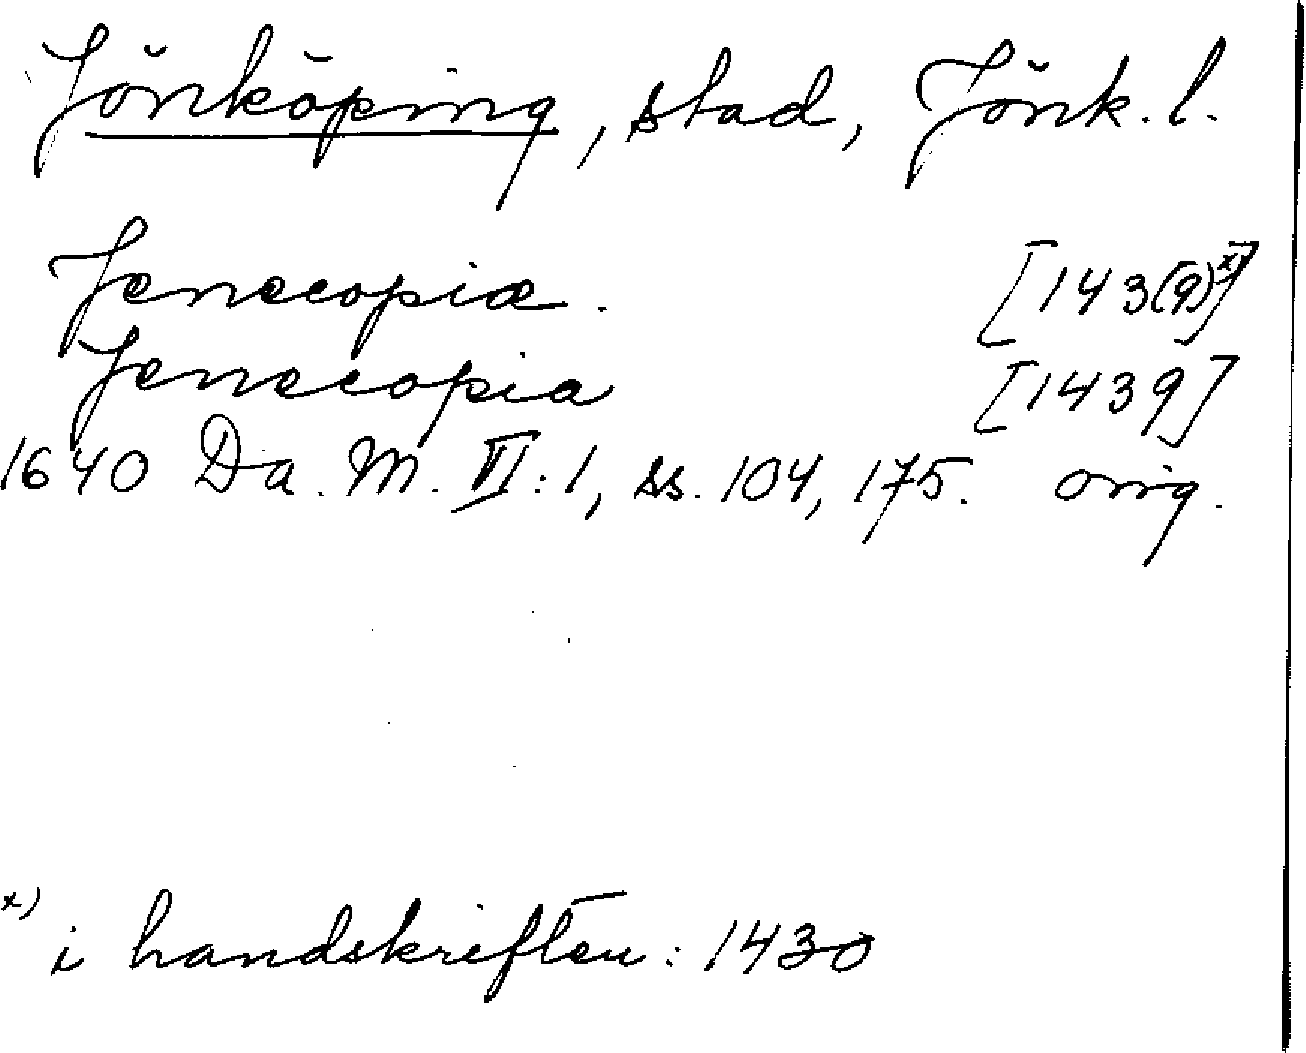 Jönköping, stad, Jönk. l.
Jenecopiæ. [143(9)x)]
Jenecopia [1439]
1640 Da. M. VI: 1, ss. 104, 175. orig.
x) i handskriften: 1430